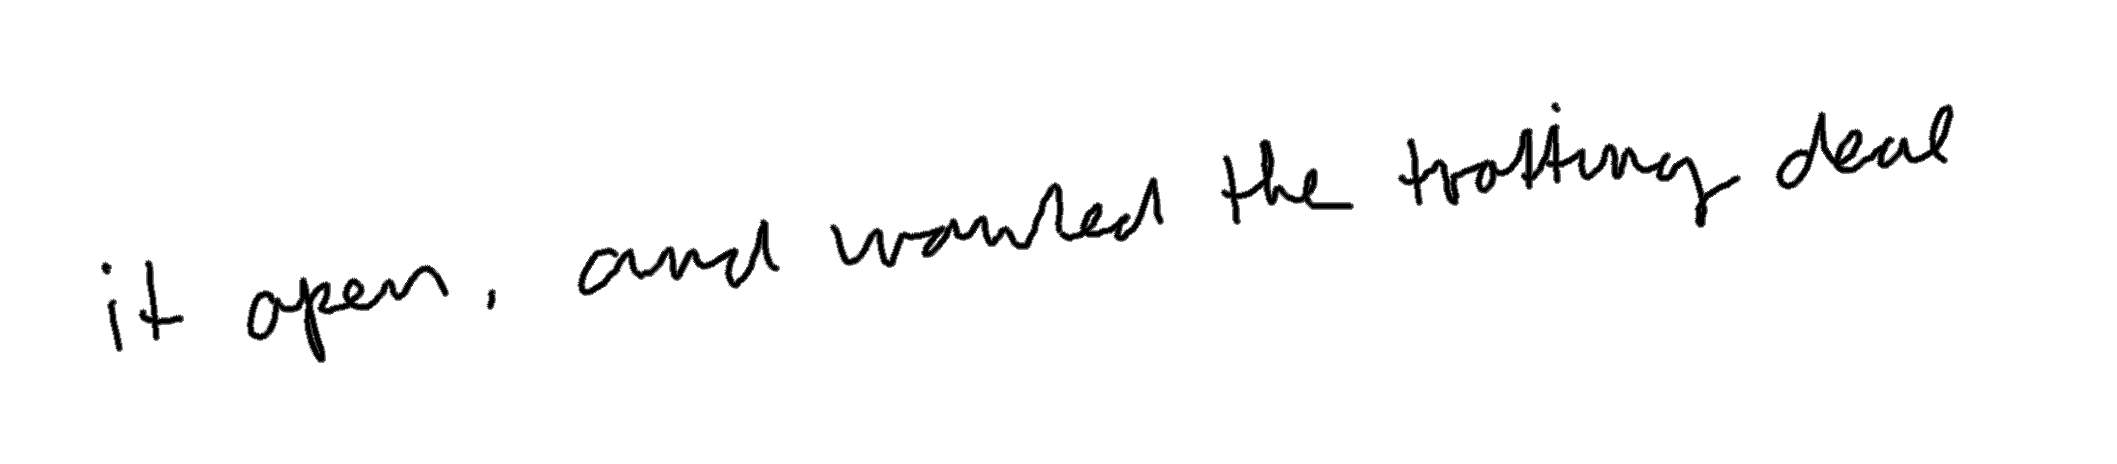 it open, and wanted the trotting deal